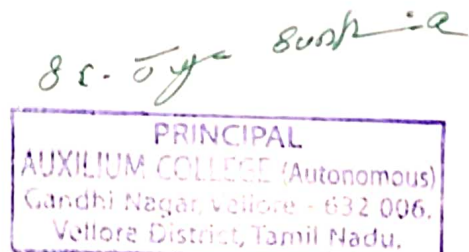 PRINCIPAL
AUXILIUM COLLEGE (Autonomous)
Gandhi Nagar, Vellore - 632 006.
Vellore District, Tamil Nadu.